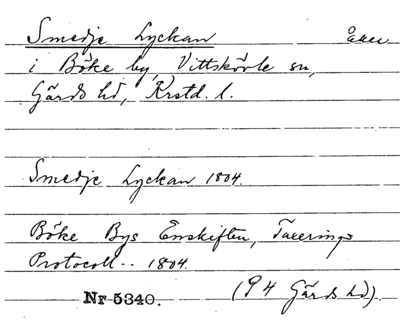 Smedje Lyckan åker
i Böke by, Vittskövle sn,
Gärds hd, Krstd. l.
Smedje Lyckan 1804.
Böke Bys Enskiften, Taxerings
Protocoll-- 1804.
Nr 5340. (94 Gärds hd)